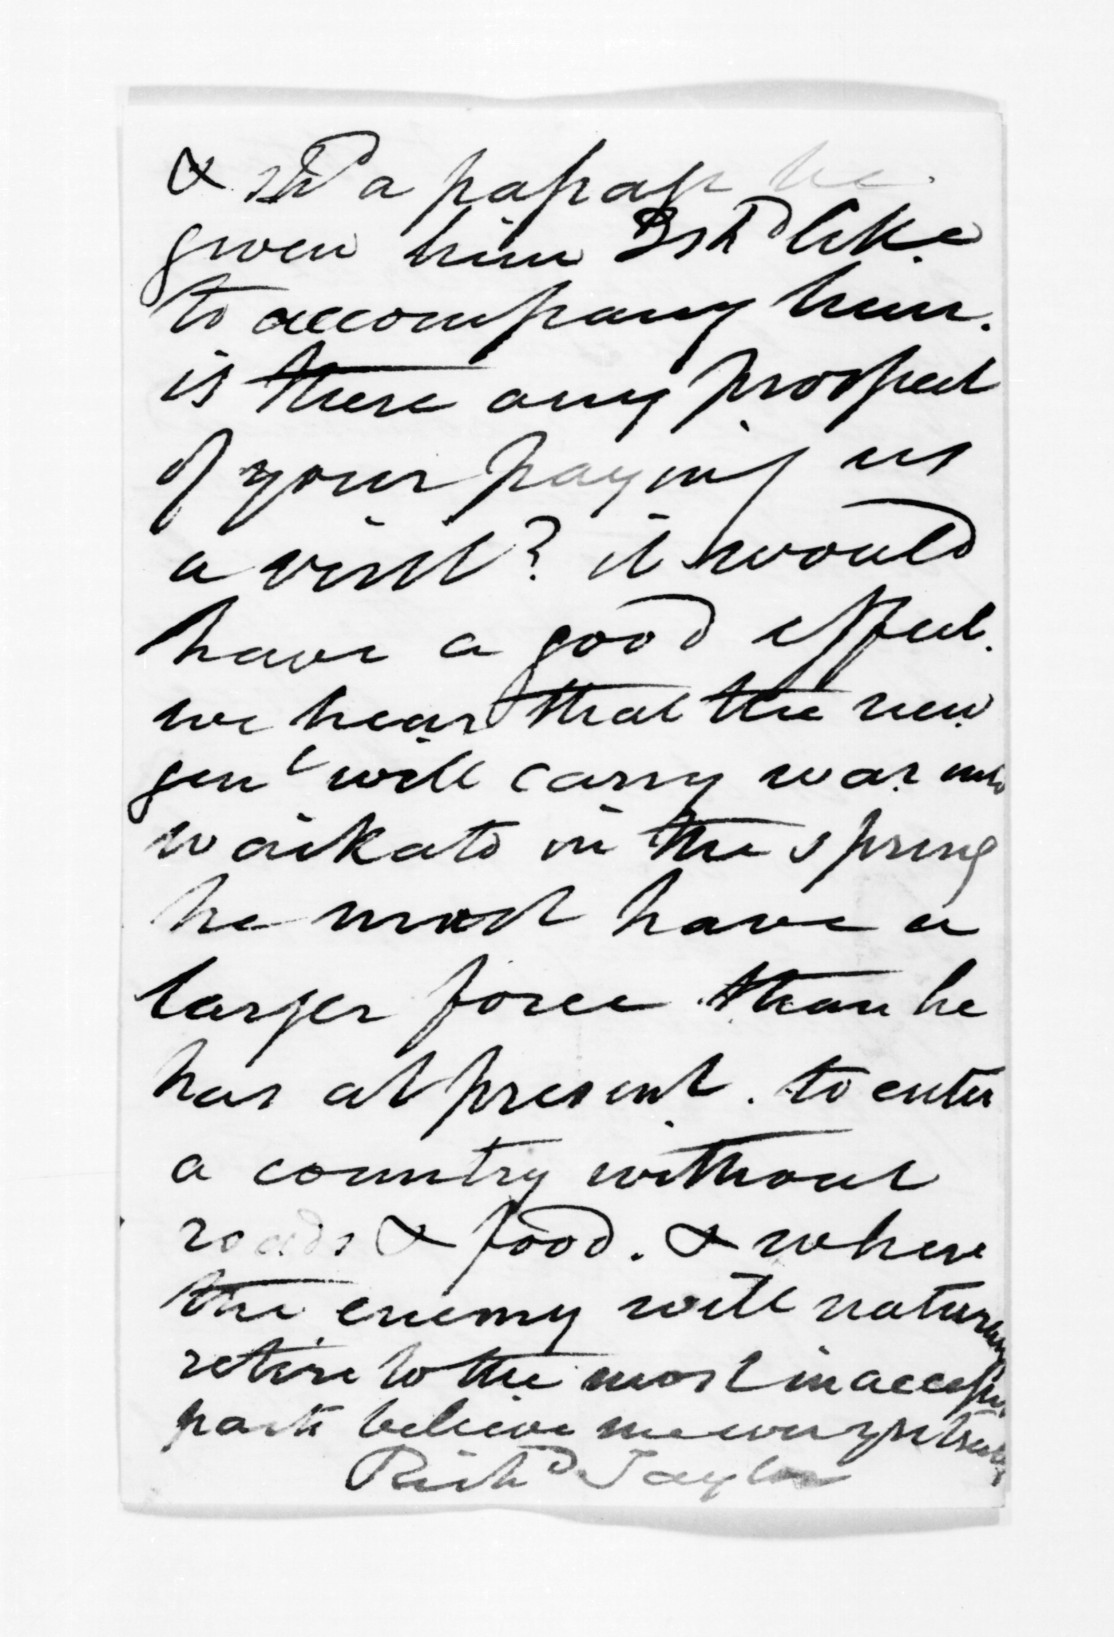 & shd a passage be
given him I shd like
to accompany him.
is there any prospect
of your paying us
a visit? it would
have a good effect.
we hear that the new
genl will carry war into
waikato in the spring
he must have a
larger force than he
has at present. to enter
a country without
roads & food. & where
the enemy will naturally
retire to the most inaccessible
parts believe me ever yrs truly
Richd Taylor